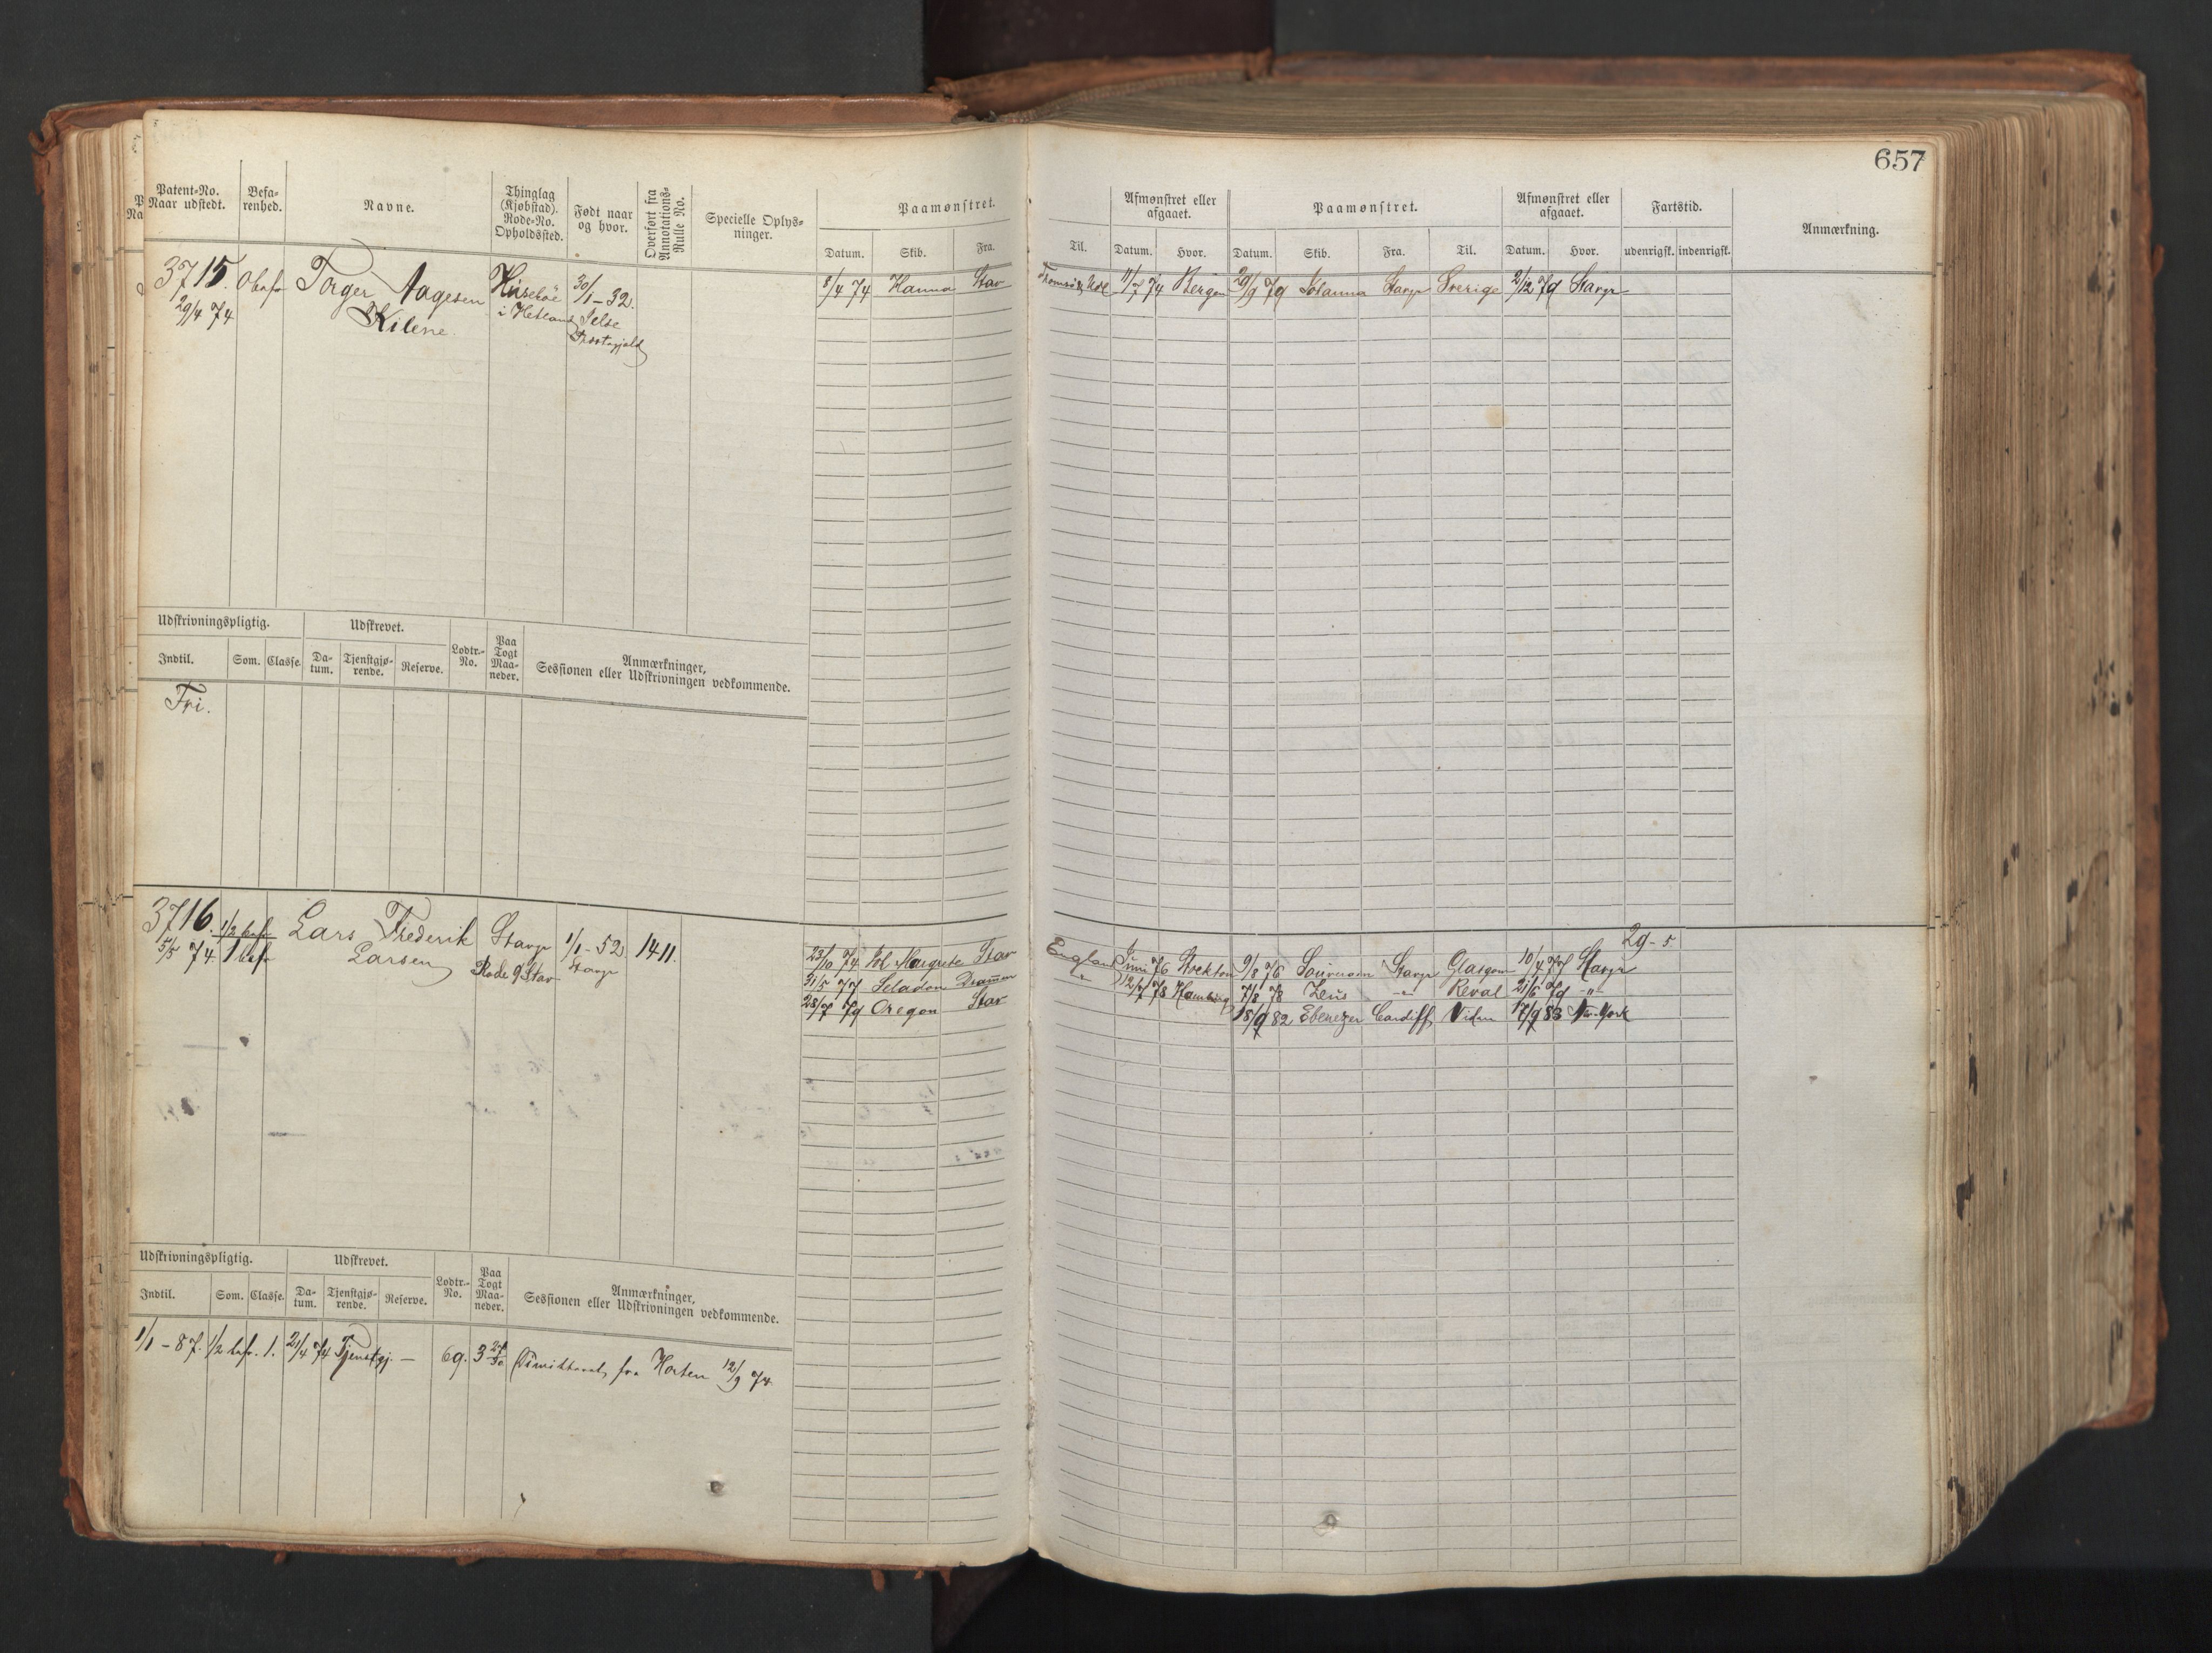 657
Patent-No. Naar udstedt.
Befarenhed.
Navne.
Thinglag (Kjøbstad). Rode-No. Opholdssted.
Født naar og hvor.
Overført fra Annotations-Rulle No.
Specielle Oplysninger.
Paamønstret.
Datum. Skib. Fra. Til.
Afmønstret eller afgaaet.
Datum. Hvor.
Paamønstret.
Datum. Skib. Fra. Til.
Afmønstret eller afgaaet.
Datum. Hvor.
Fartstid.
udenrigsk. indenrigsk.
Anmærkning.
3715.
29/4 74
Torger Aagesen
Kilene.
i Hetland
30/1-32.
Jelse
Præstegjeld
8/4 74 Hanna Stav
11/7 74 Bergen
29/9 79 Johanna Stavgr Sverige 2/12 79 Stavgr
Udskrivningspligtig.
Indtil. Som. Classe.
Udskrevet.
Datum. Tjenstgjørende. Reserve.
Lodtr.-No.
Paa Togt Maaneder.
Anmærkninger, Sessionen eller Udskrivningen vedkommende.
Fri.
3716. 1/2 bef
5/5 74. 1 bef
Lars Frederik
Larsen
Stavgr
Rode 9 Stav
1/1-52
Stavgr
1411.
29-5.
23/10 74 Sol. Margrete Stav England Juni 76 Stockton 9/8 76 Stavgr Glasgow 10/4 77 Stavgr
31/5 77 Seladon Drammen " 12/7 78 Hamburg 7/8 78 Zeus -"- Reval 21/6 79 -"-
28/7 79 Oregon Stav
18/9 82 Ebenezer Cardiff Viden 17/9 83 New York
Udskrivningspligtig.
Indtil. Som. Classe.
Udskrevet.
Datum. Tjenstgjørende. Reserve.
Lodtr.-No.
Paa Togt Maaneder.
Anmærkninger, Sessionen eller Udskrivningen vedkommende.
1/1-87. 1/2 bef. 1. 21/4 74 Tjenstgj. — 69. Dimitteret fra Horten 12/9 74